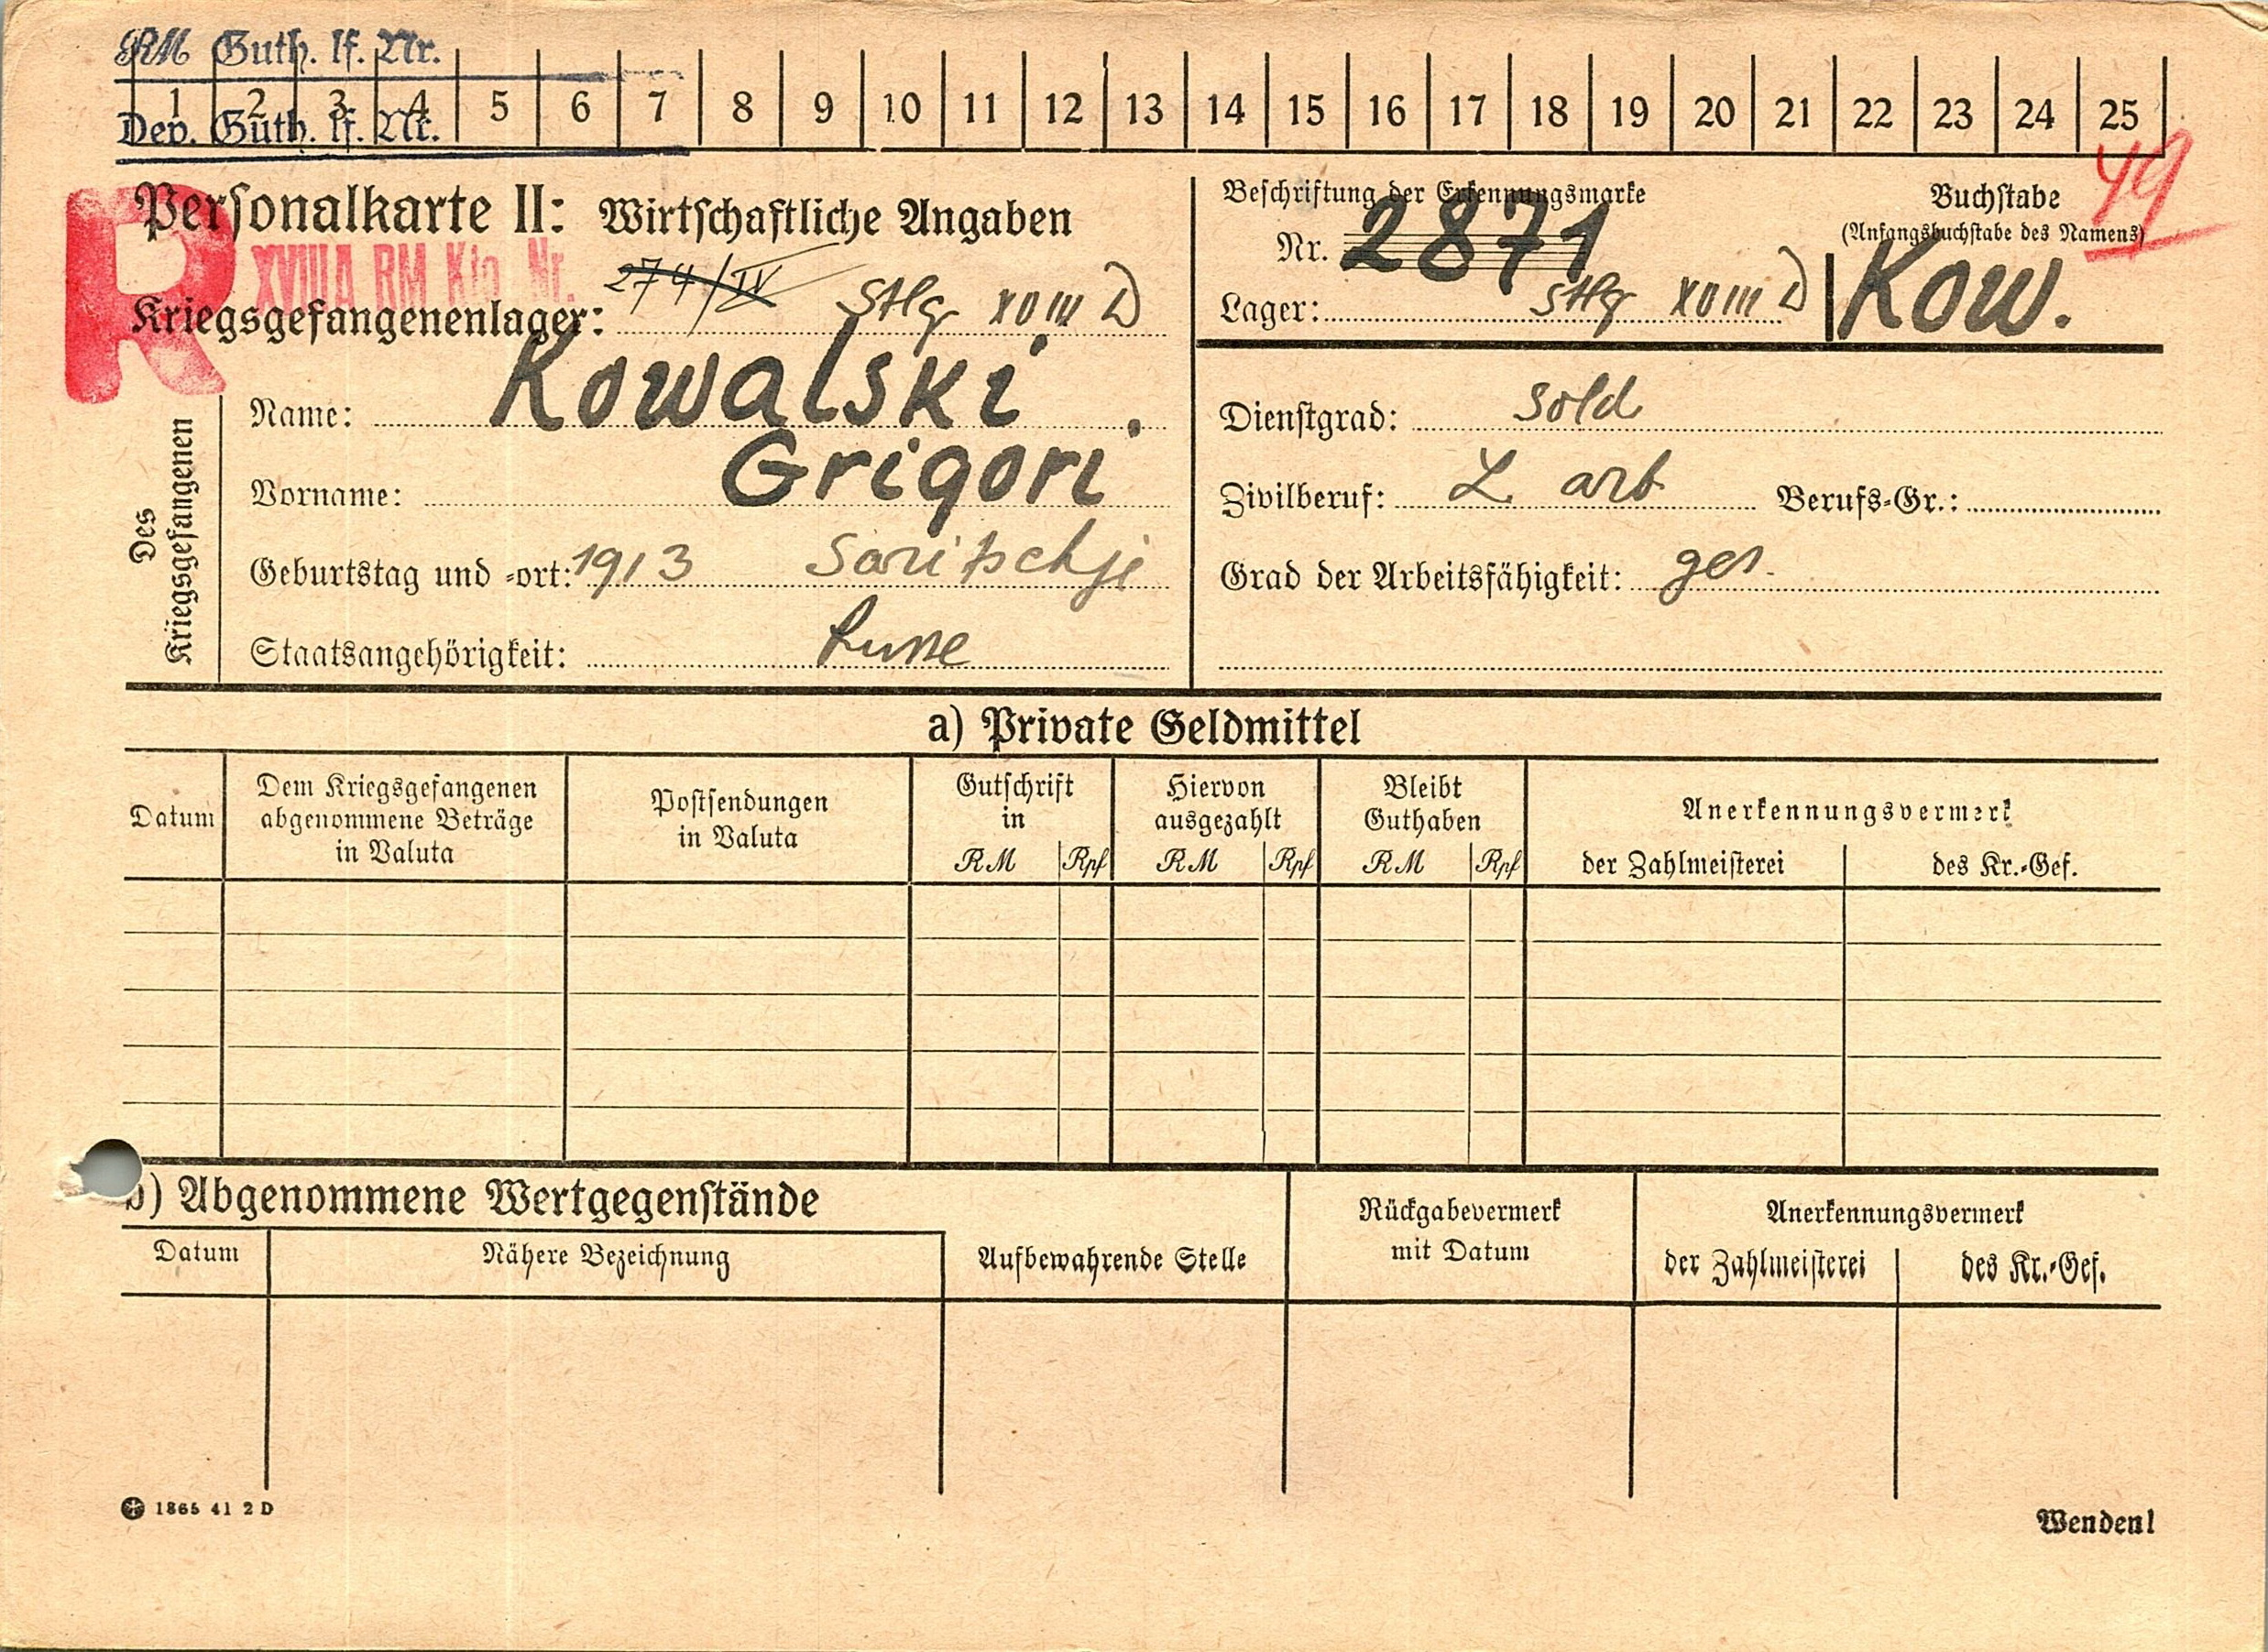 RM Guth. lf. Nr.
1 2 3 4 5 6 7 8 9 10 11 12 13 14 15 16 17 18 19 20 21 22 23 24 25
Dep. Guth. lf. Nr.
49
R
Personalkarte II: Wirtschaftliche Angaben
XVIIIA RM Kto. Nr.
274/IV
Kriegsgefangenenlager: Stlg XVIII D
Beschriftung der Erkennungsmarke
Nr. 2871
Lager: Stlg XVIII D
Buchstabe
(Anfangsbuchstabe des Namens)
Kow.
Des Kriegsgefangenen
Name: Kowalski.
Vorname: Grigori
Geburtstag und -ort: 1913 Saritschje
Staatsangehörigkeit: Russe
Dienstgrad: Sold
Zivilberuf: L. arb. Berufs-Gr.:
Grad der Arbeitsfähigkeit: ges.
a) Private Geldmittel
Datum
Dem Kriegsgefangenen
abgenommene Beträge
in Valuta
Postsendungen
in Valuta
Gutschrift
in
RM Rpf
Hiervon
ausgezahlt
RM Rpf
Bleibt
Guthaben
RM Rpf
Anerkennungsvermerk
der Zahlmeisterei des Kr.-Gef.
b) Abgenommene Wertgegenstände
Datum Nähere Bezeichnung
Aufbewahrende Stelle
Rückgabevermerk
mit Datum
Anerkennungsvermerk
der Zahlmeisterei des Kr.-Gef.
1865 41 2 D
Wenden!